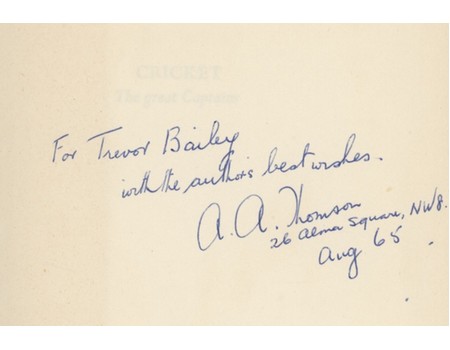 CRICKET
The great Captains
For Trevor Bailey
with the author's best wishes.
A. A. Thomson
26 Alma Square, NW8.
Aug 65